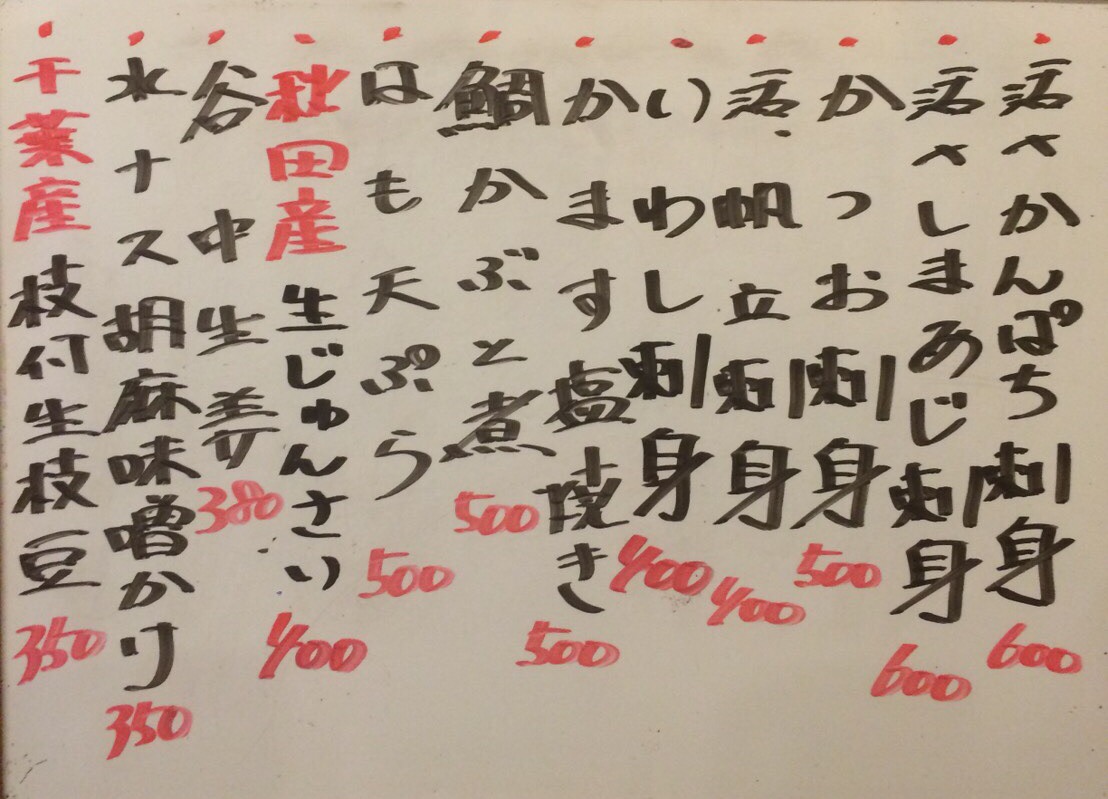 活さかんぱち刺身 600
活さしまあじ刺身 600
かつお刺身 500
活帆立刺身 400
いわし刺身 400
かます塩焼き 500
鯛かぶと煮 500
はも天ぷら 500
秋田産生じゅんさい 400
谷中生姜 380
水ナス胡麻味噌かけ 350
千葉産枝付生枝豆 350